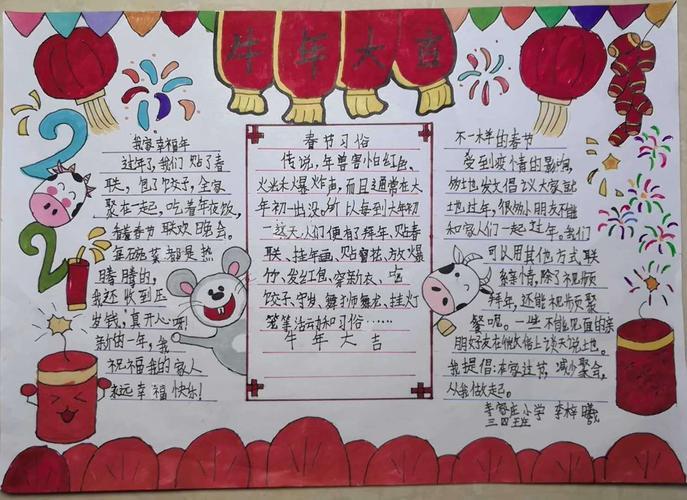 牛年大吉
2021
我家幸福年
过年了,我们贴了春
联,包了饺子,全家
聚在一起,吃着年夜饭,
看着春节联欢晚会。
每碗菜都是热
腾腾的,
我还收到压
岁钱,真开心呀!
新的一年,我
祝福我的家人
永远幸福快乐!
春节习俗
传说,年兽害怕红色、
火光和爆炸声,而且通常在大
年初一出没,所以每到大年初
一这天,人们便有了拜年、贴春
联、挂年画、贴窗花、放爆
竹、发红包、穿新衣、吃
饺子、守岁、舞狮舞龙、挂灯
笼等活动和习俗……
牛年大吉
不一样的春节
受到疫情的影响,
各地发文倡议大家就
地过年,很多小朋友不能
和家人们一起过年。我们
可以用其他方式联
络亲情,除了视频
拜年,还能视频聚
餐呢。一些不能见面的亲
朋好友在微信上谈天说地。
我提倡:本家过节,减少聚会,
从我做起。
李家庄小学 李梓曦
三四班